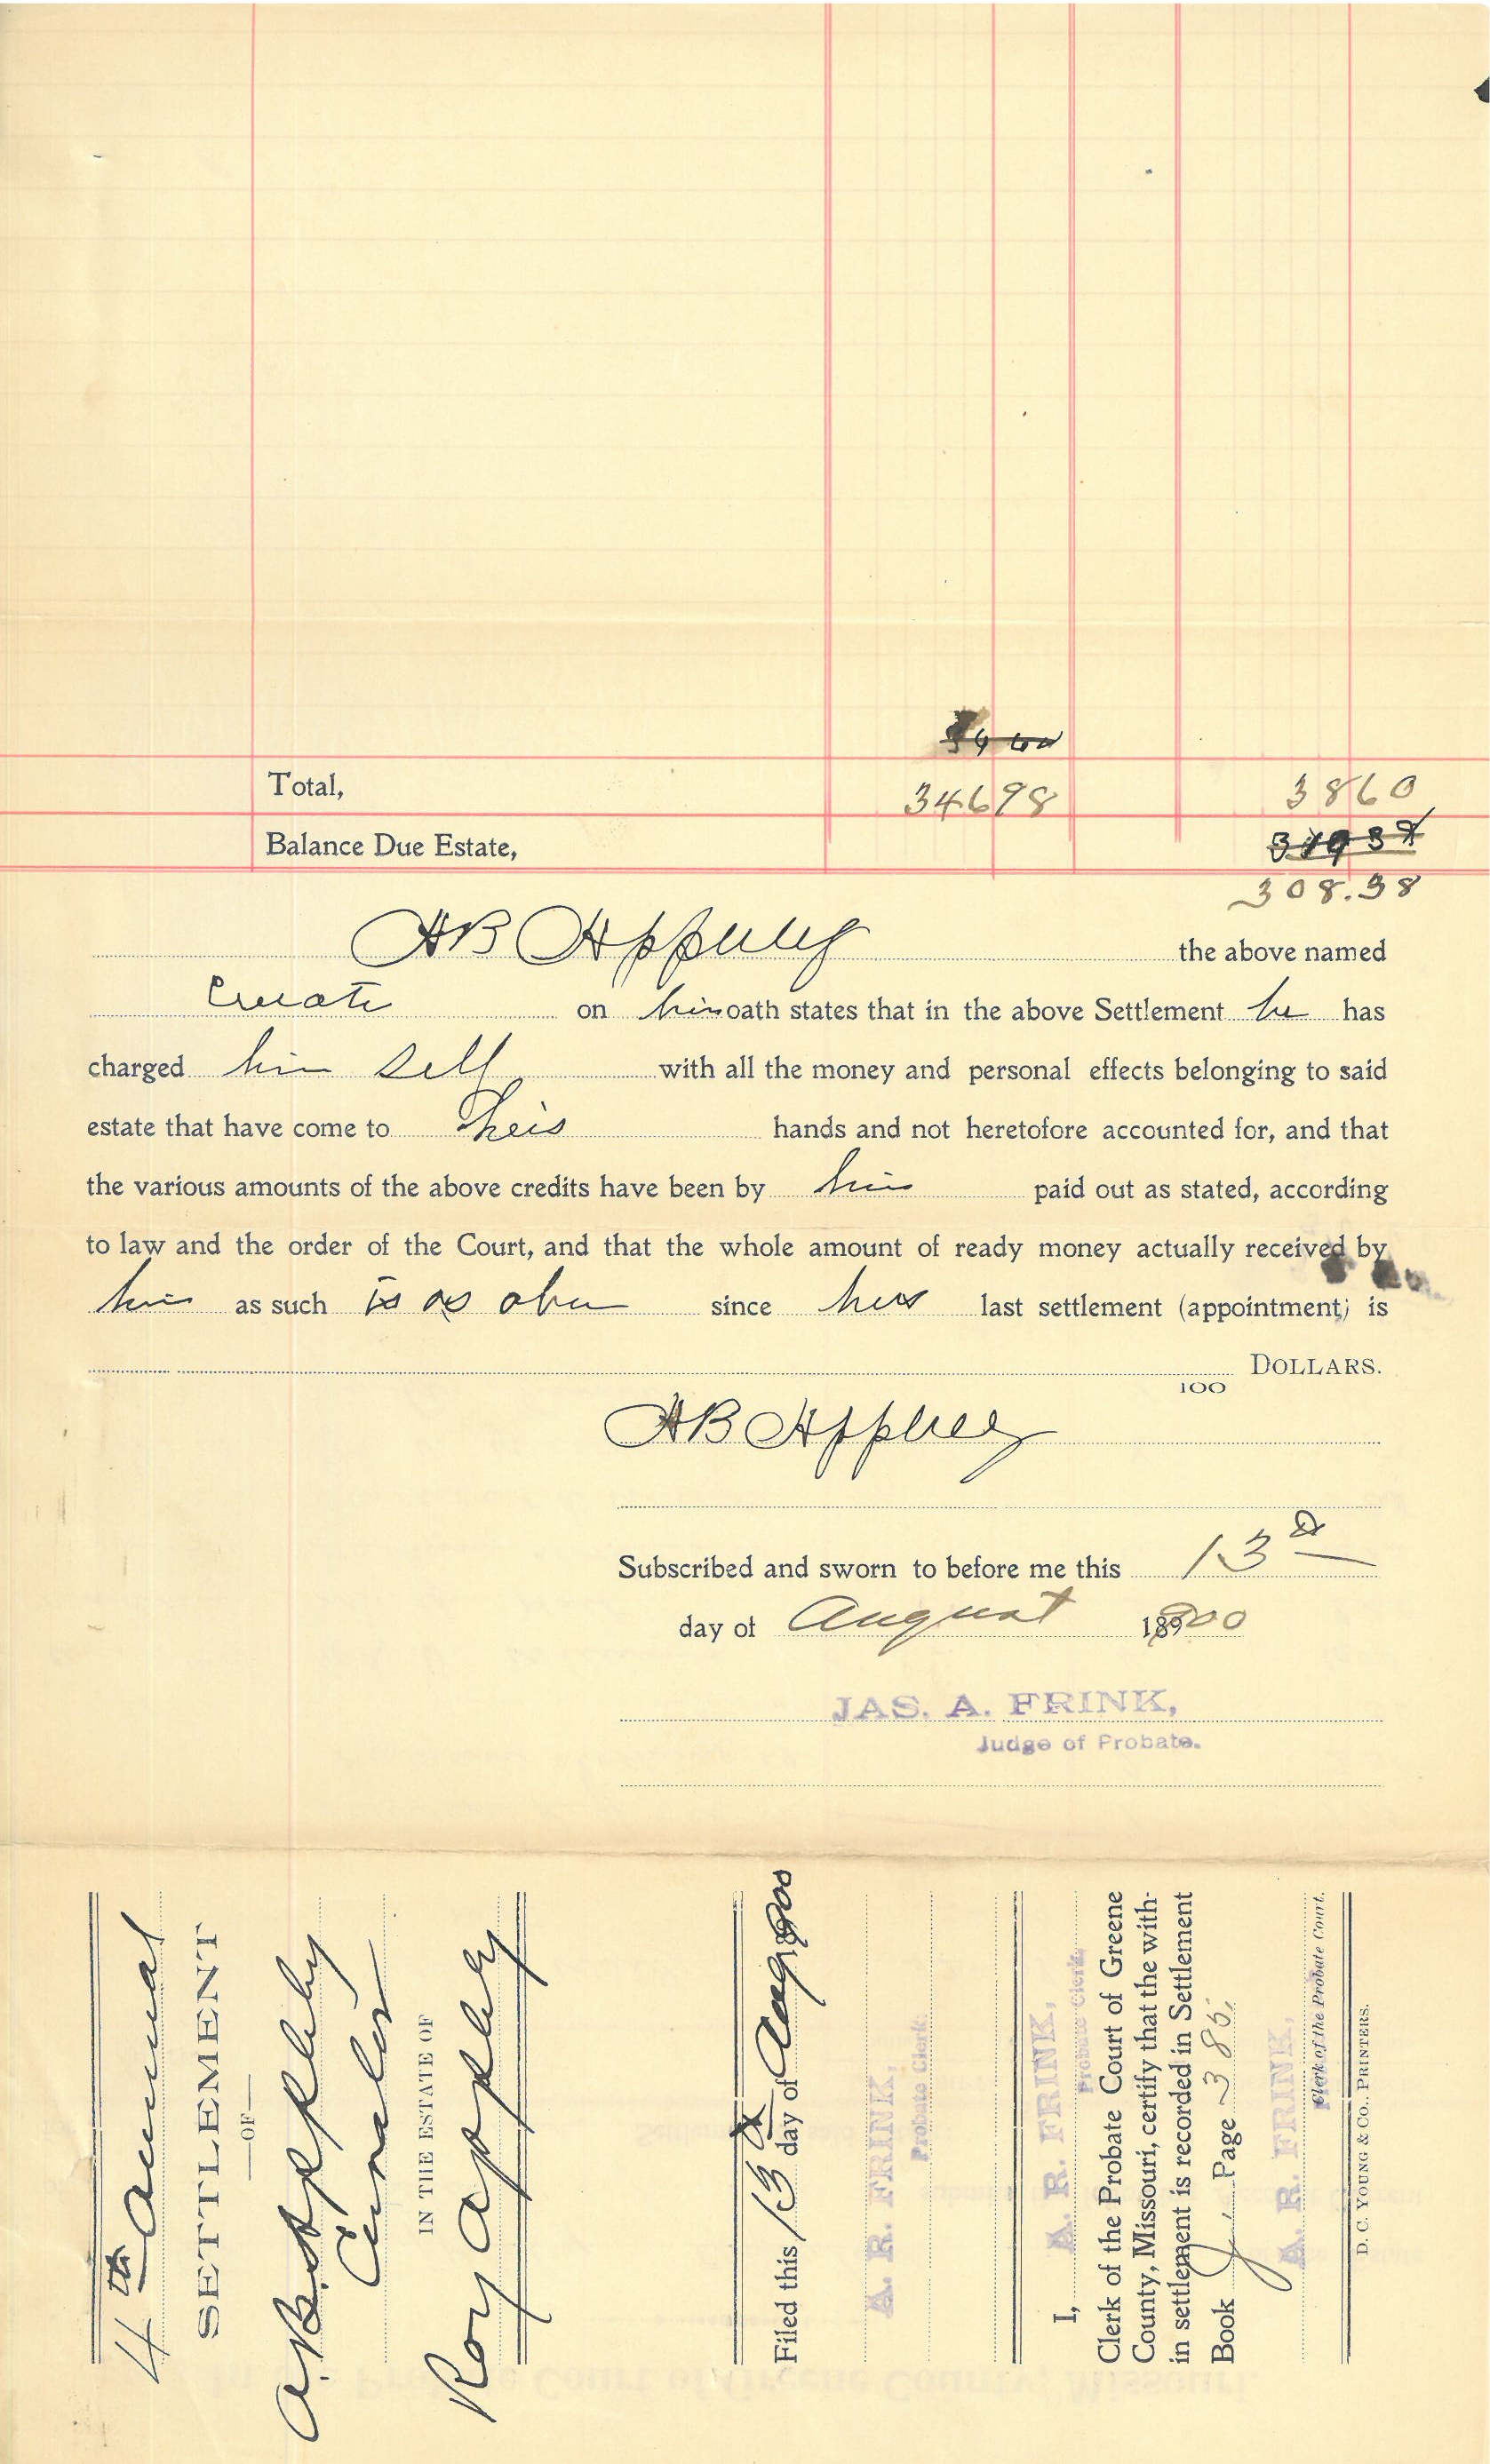 Total, 34698 3860
Balance Due Estate,
308.38
AB Appleby the above named
Curator on his oath states that in the above Settlement he has
charged him self with all the money and personal effects belonging to said
estate that have come to his hands and not heretofore accounted for, and that
the various amounts of the above credits have been by him paid out as stated, according
to law and the order of the Court, and that the whole amount of ready money actually received by
him as such is as above since his last settlement (appointment) is
100 DOLLARS.
AB Appleby
Subscribed and sworn to before me this 13th
day of August 1900
JAS. A. FRINK,
Judge of Probate.
4th Annual
SETTLEMENT
—OF—
A.B. Appleby
Curator
IN THE ESTATE OF
Roy Appleby
Filed this 13th day of Aug 1900
A. R. FRINK,
Probate Clerk.
I, A. R. FRINK,
Probate Clerk,
Clerk of the Probate Court of Greene
County, Missouri, certify that the with-
in settlement is recorded in Settlement
Book J Page 385.
A. R. FRINK,
Clerk of the Probate Court.
D. C. YOUNG & CO., PRINTERS.